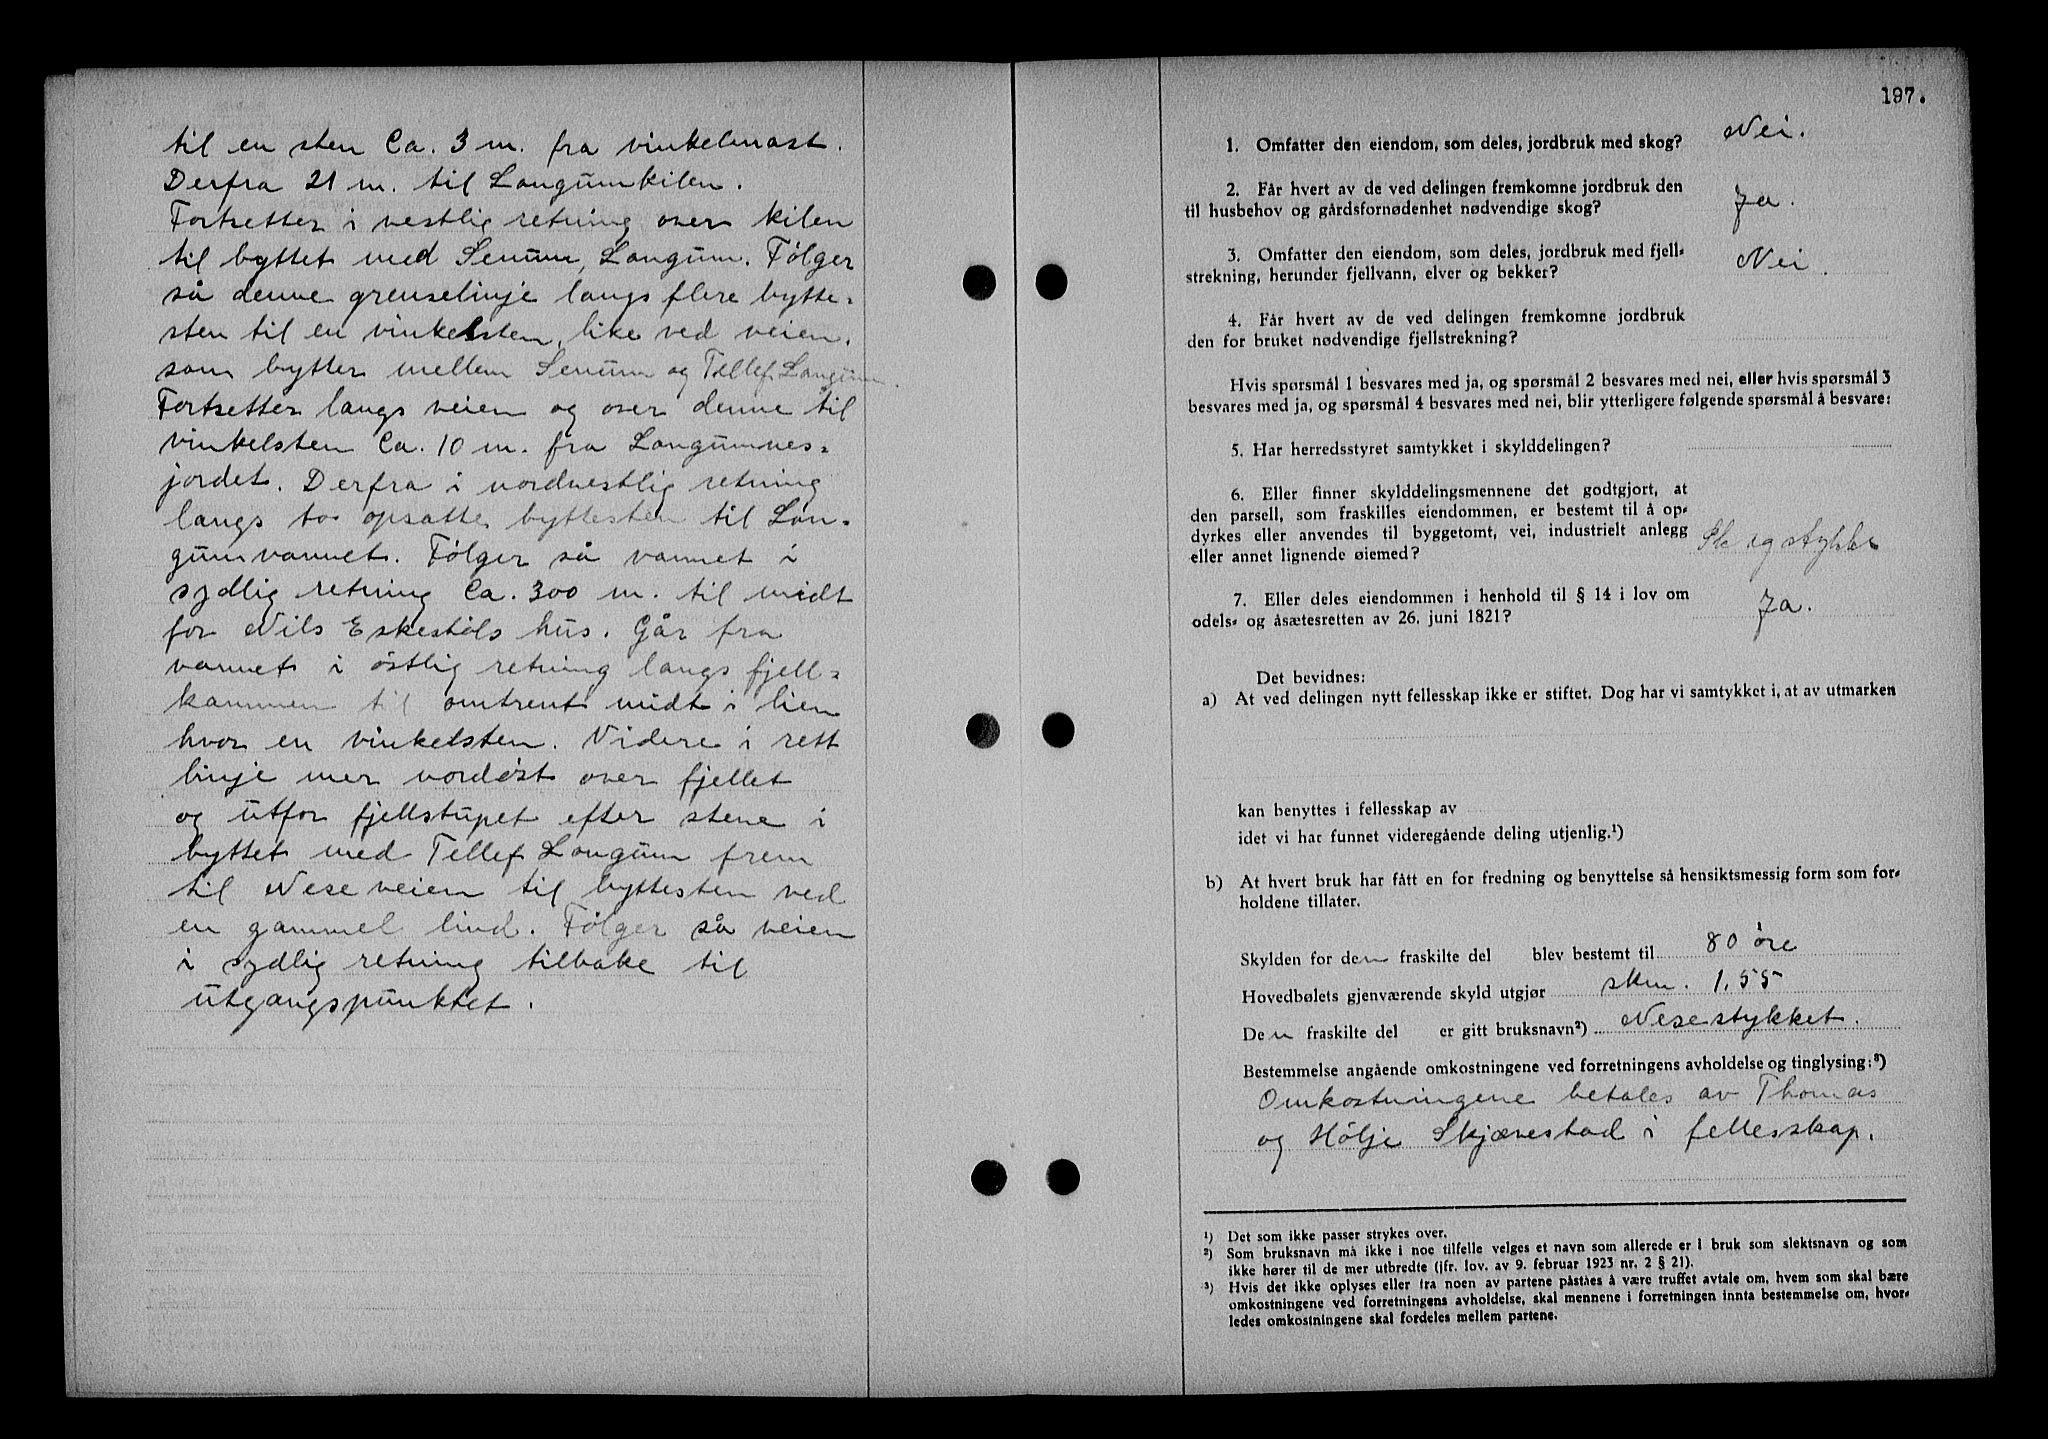 til en sten Ca. 3 m. fra vinkelmast.
Derfra 21 m. til Langumkilen.
Fortsetter i vestlig retning over kilen
til byttet med Senum, Langum. Følger
så denne grenselinje langs flere bytte-
sten til en vinkelsten, like ved veien,
som bytter mellem Senum og Tellef Langum.
Fortsetter langs veien og over denne til
vinkelsten Ca. 10 m. fra Langumnes-
jordet. Derfra i nordvestlig retning
langs to opsatte byttesten til Lan-
gumvannet. Følger så vannet i
sydlig retning Ca. 300 m. til midt
for Nils Eskestøls hus. Går fra
vannet i østlig retning langs fjell-
kammen til omtrent midt i lien
hvor en vinkelsten. Videre i rett
linje mer nordøst over fjellet
og utfor fjellstupet efter stene i
byttet med Tellef Langum frem
til Nese veien til byttesten ved
en gammel lind. Følger så veien
i sydlig retning tilbake til
utgangspunktet.
197.
1. Omfatter den eiendom, som deles, jordbruk med skog? Nei.
2. Får hvert av de ved delingen fremkomne jordbruk den
til husbehov og gårdsfornødenhet nødvendige skog? Ja.
3. Omfatter den eiendom, som deles, jordbruk med fjell-
strekning, herunder fjellvann, elver og bekker? Nei.
4. Får hvert av de ved delingen fremkomne jordbruk
den for bruket nødvendige fjellstrekning?
Hvis spørsmål 1 besvares med ja, og spørsmål 2 besvares med nei, eller hvis spørsmål 3
besvares med ja, og spørsmål 4 besvares med nei, blir ytterligere følgende spørsmål å besvare:
5. Har herredsstyret samtykket i skylddelingen?
6. Eller finner skylddelingsmennene det godtgjort, at
den parsell, som fraskilles eiendommen, er bestemt til å op-
dyrkes eller anvendes til byggetomt, vei, industrielt anlegg
eller annet lignende øiemed?
7. Eller deles eiendommen i henhold til § 14 i lov om
odels- og åsætesretten av 26. juni 1821? Ja.
Det bevidnes:
a) At ved delingen nytt fellesskap ikke er stiftet. Dog har vi samtykket i, at av utmarken
kan benyttes i fellesskap av
idet vi har funnet videregående deling utjenlig.¹)
b) At hvert bruk har fått en for fredning og benyttelse så hensiktsmessig form som for-
holdene tillater.
Skylden for den fraskilte del blev bestemt til 80 øre
Hovedbølets gjenværende skyld utgjør skm. 1,55
Den fraskilte del er gitt bruksnavn²) Nesestykket.
Bestemmelse angående omkostningene ved forretningens avholdelse og tinglysing:³)
Omkostningene betales av Thomas
og Hølje Skjævestad i fellesskap.
¹) Det som ikke passer strykes over.
²) Som bruksnavn må ikke i noe tilfelle velges et navn som allerede er i bruk som slektsnavn og som
ikke hører til de mer utbredte (jfr. lov. av 9. februar 1923 nr. 2 § 21).
³) Hvis det ikke oplyses eller fra noen av partene påståes å være truffet avtale om, hvem som skal bære
omkostningene ved forretningens avholdelse, skal mennene i forretningen innta bestemmelse om, hvor-
ledes omkostningene skal fordeles mellem partene.